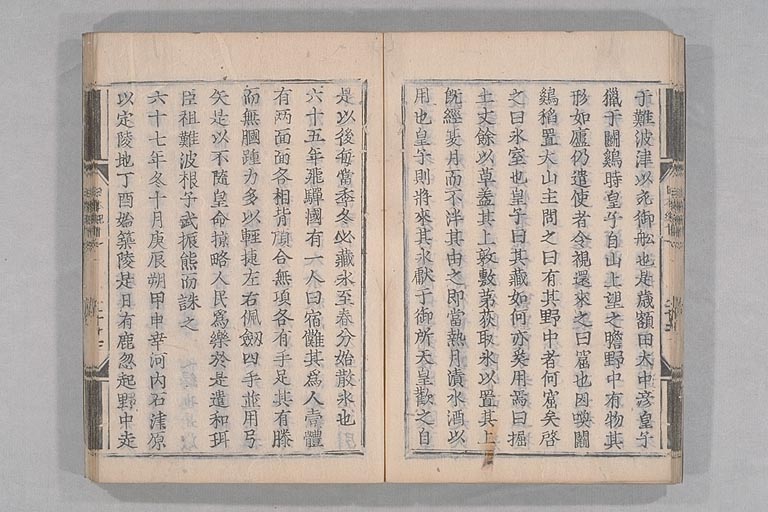 于難波津以充御舩也是歳額田大中彦皇子
獵于鬪鷄時皇子自山上望之瞻野中有物其
形如廬仍遣使者令視還來之曰窟也因喚鬪
鷄稻置大山主問之曰有其野中者何窟矣啓
之曰氷室也皇子曰其藏如何亦奚用焉曰掘
土丈餘以草蓋其上敦敷茅荻取氷以置其上
旣經夏月而不泮其由之即當熱月漬水酒以
用也皇子則將來其氷獻于御所天皇歡之自
是以後每當季冬必藏氷至春分始散氷也
六十五年飛驒國有一人曰宿儺其爲人壹體
有兩面面各相背頂合無項各有手足其有膝
而無膕踵力多以輕捷左右佩劔四手並用弓
矢是以不隨皇命掠略人民爲樂於是遣和珥
臣祖難波根子武振熊而誅之
六十七年冬十月庚辰朔甲申幸河内石津原
以定陵地丁酉始築陵是日有鹿忽起野中走